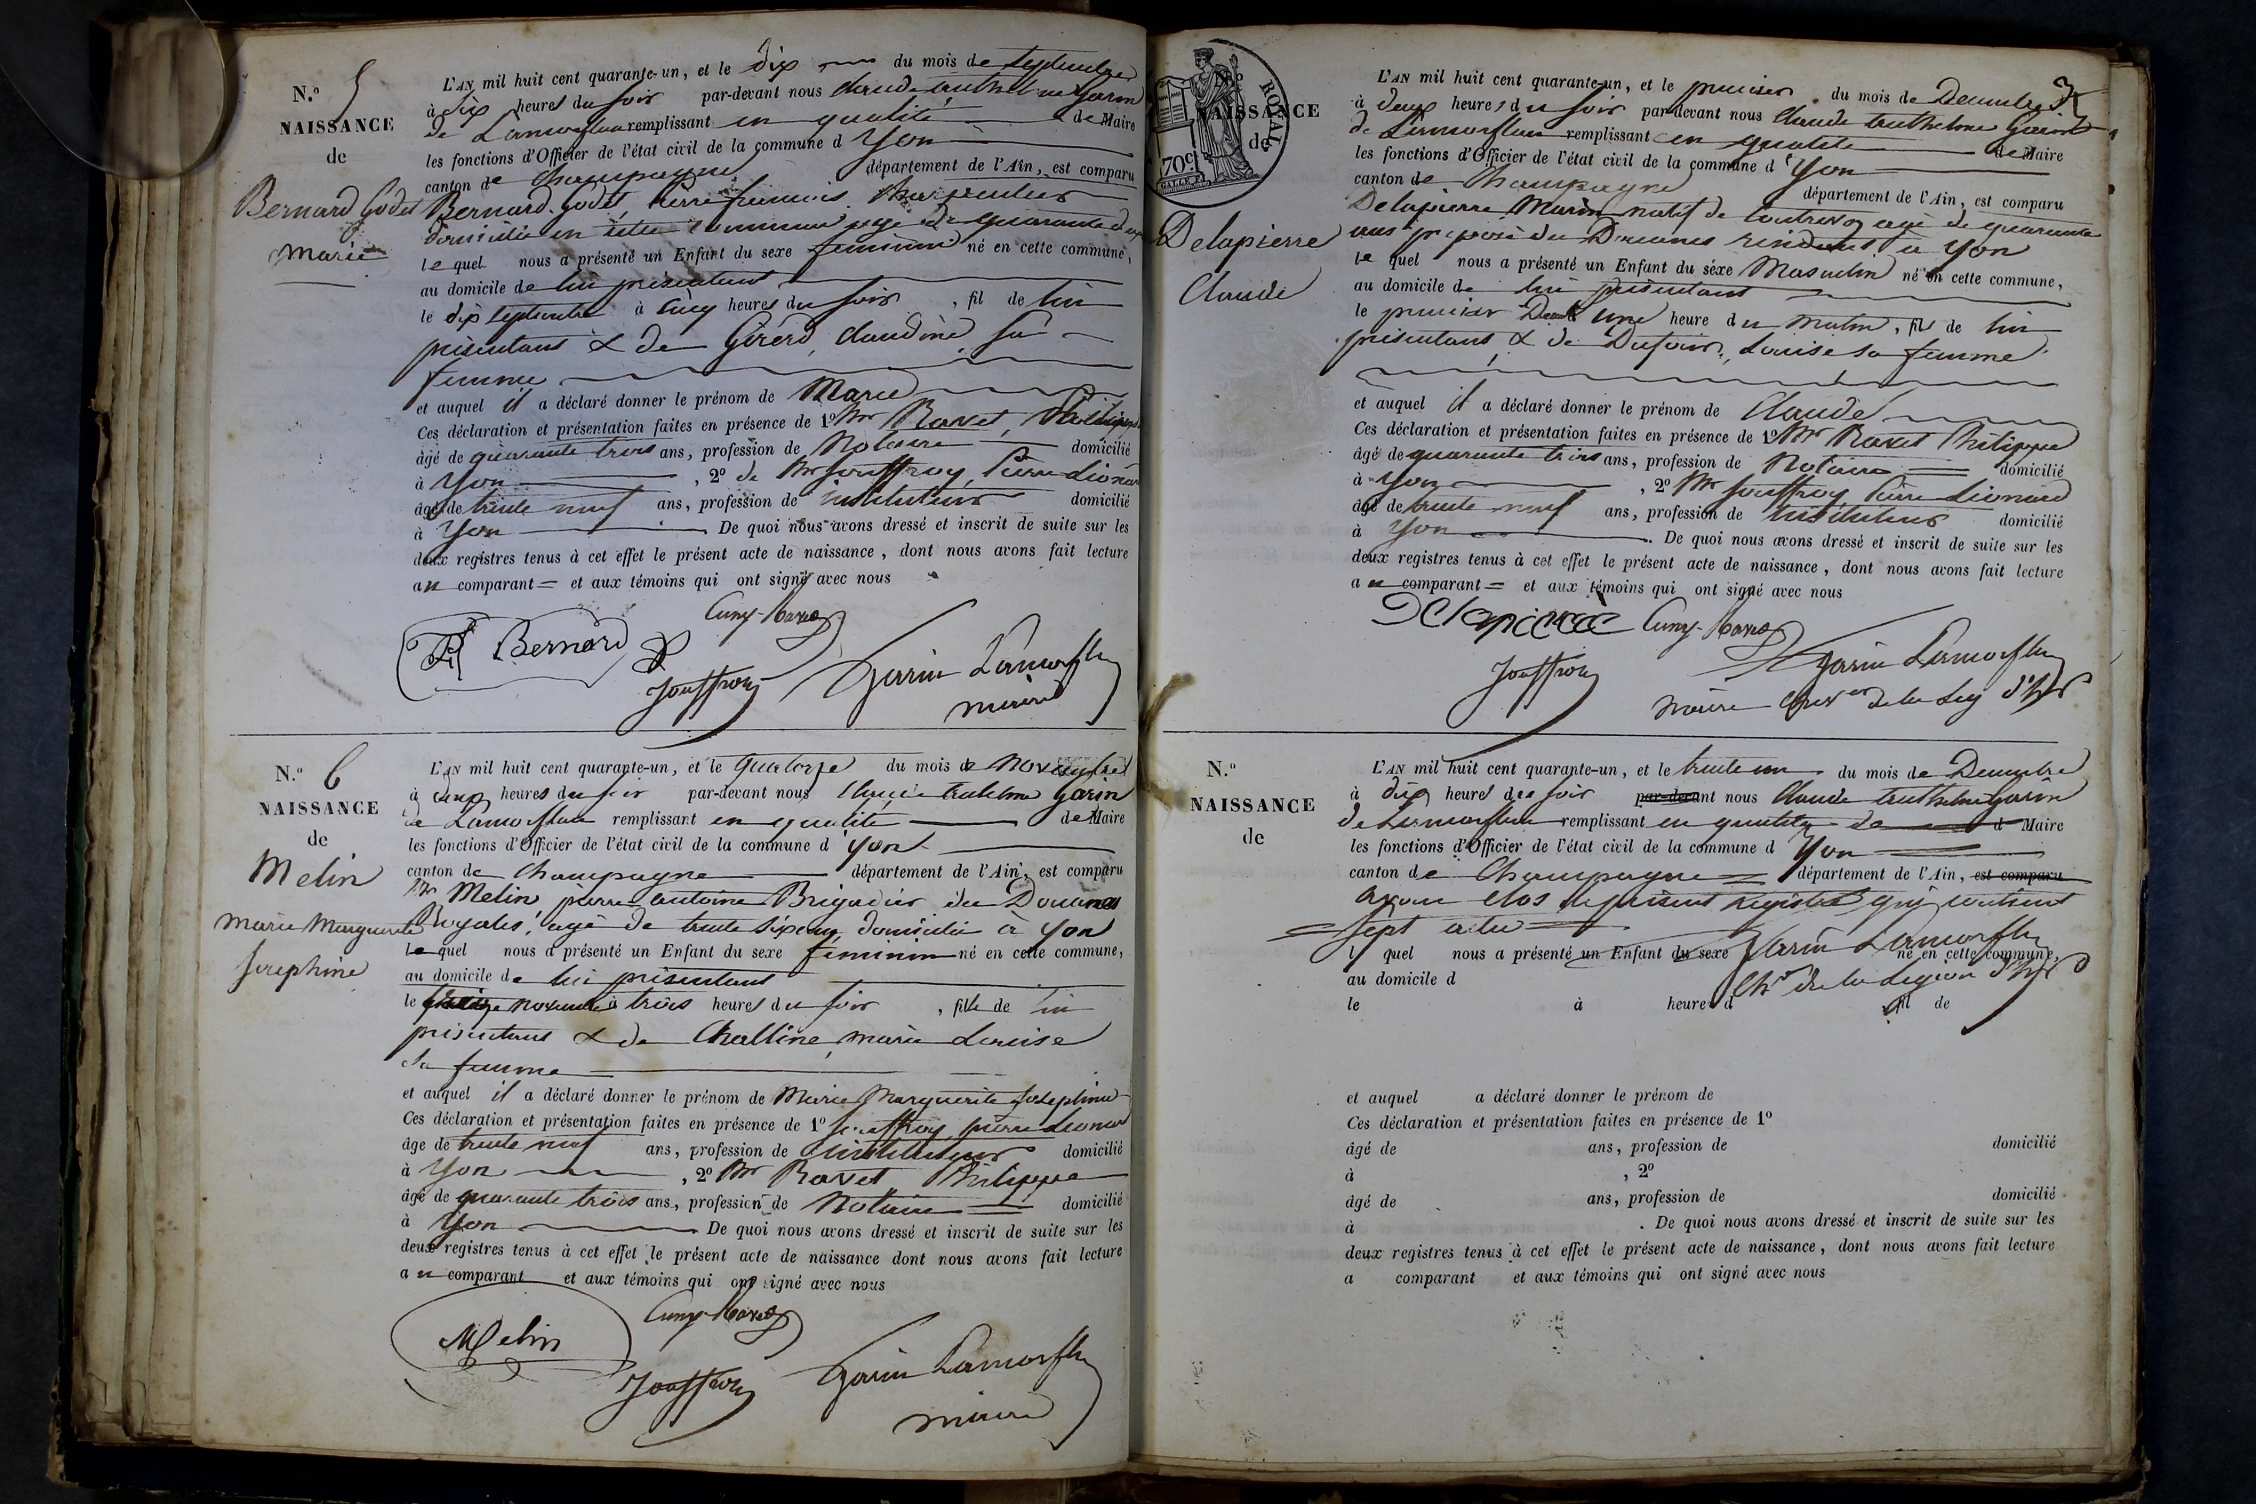 N.º 5
NAISSANCE
de
Bernard Godet
Marie
L'AN mil huit cent quarante-un, et le dix du mois de Septembre
à Six heures du soir par-devant nous Claude Anthelme Garin
de Lamorflan remplissant en qualité de Maire
les fonctions d'Officier de l'état civil de la commune d Yon
canton de Champagne département de l'Ain, est comparu
Bernard Godet, Pierre francois, Charpentier
domicilié en cette commune agé De quarante deux
le quel nous a présenté un Enfant du sexe feminin né en cette commune,
au domicile de lui présentant
le dix Septembre à Cinq heures du soir, fil de lui
présentant & de Girerd, Claudine, sa
femme
et auquel il a déclaré donner le prénom de Marie
Ces déclaration et présentation faites en présence de 1º Mr Ravet, Philippe
âgé de quarante trois ans, profession de Notaire domicilié
à Yon, 2º de Mr Jouffroy, Pierre Léonard
âgé de trente neuf ans, profession de instituteur domicilié
à Yon De quoi nous avons dressé et inscrit de suite sur les
deux registres tenus à cet effet le présent acte de naissance, dont nous avons fait lecture
au comparant = et aux témoins qui ont signé avec nous
Bernard
Jouffroy
Garin Lamorflan
maire
N.º 6
NAISSANCE
de
Melin
Marie Marguerite
Josephine
L'AN mil huit cent quarante-un, et le Quatorze du mois de Novembre
à Cinq heures du soir par-devant nous Claude Anthelme Garin
de Lamorflan remplissant en qualité de Maire
les fonctions d'Officier de l'état civil de la commune d Yon
canton de Champagne département de l'Ain, est comparu
Mr Melin pierre antoine Brigadier des Douanes
Royales, agé de trente six ans, domicilié à Yon
le quel nous a présenté un Enfant du sexe féminin né en cette commune,
au domicile de lui présentant
le treize Novembre à trois heures du soir, fille de lui
présentant & de Challine, marie Louise
sa femme
et auquel il a déclaré donner le prénom de Marie Marguerite Josephine
Ces déclaration et présentation faites en présence de 1º Jouffroy, pierre Léonard
âgé de trente neuf ans, profession de instituteur domicilié
à Yon, 2º Mr Ravet Philippe
âgé de quarante trois ans, profession de Notaire domicilié
à Yon De quoi nous avons dressé et inscrit de suite sur les
deux registres tenus à cet effet le présent acte de naissance dont nous avons fait lecture
au comparant et aux témoins qui ont signé avec nous
Melin
Jouffroy
Garin Lamorflan
maire
ROYAL
70c.
NAISSANCE
de
Delapierre
Claude
L'AN mil huit cent quarante-un, et le premier du mois de Decembre
à deux heures du soir par-devant nous Claude Anthelme Garin
de Lamorflan remplissant en qualité de Maire
les fonctions d'Officier de l'état civil de la commune d'Yon
canton de Champagne département de l'Ain, est comparu
Delapierre Marin natif de agé de quarante
ans préposé des Douanes résidant à Yon
le quel nous a présenté un Enfant du séxe Masculin né en cette commune,
au domicile de lui présentant
le premier Decembre une heure du Matin, fils de lui
présentant, & de Dufour, Louise sa femme
et auquel il a déclaré donner le prénom de Claude
Ces déclaration et présentation faites en présence de 1º Mr Ravet Philippe
âgé de quarante trois ans, profession de Notaire domicilié
à Yon, 2º Mr Jouffroy, Pierre Léonard
âgé de trente neuf ans, profession de Instituteur domicilié
à Yon. De quoi nous avons dressé et inscrit de suite sur les
deux registres tenus à cet effet le présent acte de naissance, dont nous avons fait lecture
au comparant = et aux témoins qui ont signé avec nous
Delapierre
Jouffroy
Garin Lamorflan
maire de la Leg d'hr
N.º
NAISSANCE
de
L'AN mil huit cent quarante-un, et le trente un du mois de Decembre
à dix heures du soir par-devant nous Claude Anthelme Garin
de Lamorflan remplissant en qualité de d Maire
les fonctions d'Officier de l'état civil de la commune d Yon
canton de Champagne département de l'Ain, est comparu
avons clos le présent Registre qui contient
sept actes
l quel nous a présenté un Enfant du sexe né en cette commune,
Garin Lamorflan
au domicile d
Chr de la Legion d'hr
le à heures d fil de
et auquel a déclaré donner le prénom de
Ces déclaration et présentation faites en présence de 1º
âgé de ans, profession de domicilié
à , 2º
âgé de ans, profession de domicilié
à . De quoi nous avons dressé et inscrit de suite sur les
deux registres tenus à cet effet le présent acte de naissance, dont nous avons fait lecture
a comparant et aux témoins qui ont signé avec nous